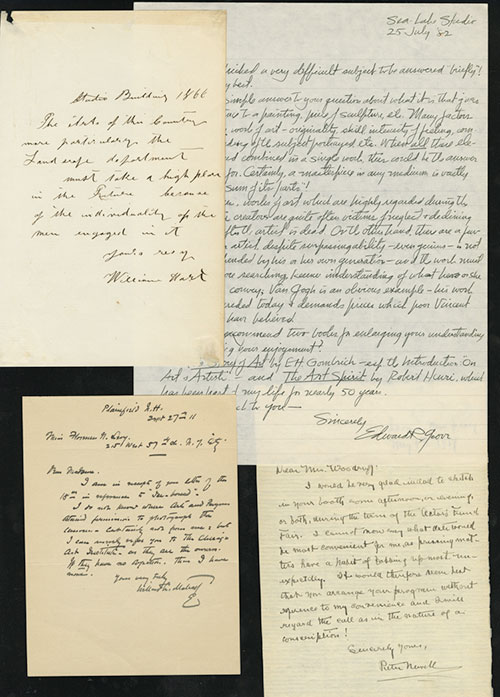 Studio Building 1866
The state of this Country
more particularly the
Landscape department
must take a high place
in the Future because
of the individuality of the
men engaged in it
Yours resp
William Hart
Sea Lake Studio
25 July '82
a very difficult subject to be answered "briefly"!
best.
simple answer to your question about what it is that gives
to a painting, piece of sculpture, etc. Many factors
work of art - originality, skill, intensity of feeling,
of the subject portrayed etc. When all these
combined in a single work this could be the answer
for. Certainly, a masterpiece in any medium is vastly
"sum of its parts"!
works of art which are highly regarded during the
creator are quite often victims of neglect & declining
artist is dead. On the other hand there are a few
artist, despite surpassing ability - even genius - is not
by his or her own generation - and the work must
rewriting, hence understanding of what he or she
convey. Van Gogh is an obvious example - his work
today & demands prices which poor Vincent
have believed!
recommend two books for enlarging your understanding
your enjoyment!
Story of Art by EH Gombrich - esp. the Introduction "On
Art & Artists" - and The Art Spirit by Robert Henri, which
has been part of my life for nearly 50 years.
to you -
Sincerely
Edward R Grove
Plainfield N.H.
Sept 27th 11
Miss Florence N. Levy.
215 West 57th St. N.Y. City.
Dear Madam.
I am in receipt of your letter of the
18th in reference to
I do not know where Art and Progress
obtained permission to photograph the
certainly not from me; but
I can merely refer you to the Chicago
Art Institute - as they are the owners.
If they have no objection, then I have
none.
Yours very truly,
Willard L. Metcalf
Dear Mrs. Woodruff:
I would be very glad indeed to sketch
in your booth some afternoon, or evening,
or both, during the term of the Actors' Fund
Fair. I cannot now say what date would
be most convenient for me as pressing mat-
ters have a habit of bobbing up most un-
expectedly. It would therefore seem best
that you arrange your program without
reference to my convenience and I will
regard the call as in the nature of a
conscription!
Sincerely Yours,
Peter Newell